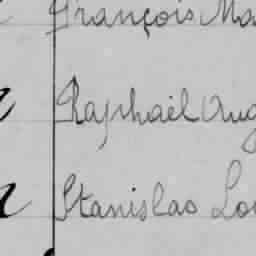 François Ma
Raphaël Aug
Stanislas Lou